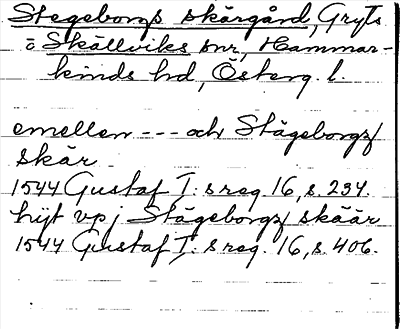 Stegeborgs skärgård, Gryts
o Skällviks snr, Hammar-
kinds hd, Österg. l.
emellen --- och Stägeborgz
skär
1544 Gustaf I: s reg. 16, s. 234.
hijt vp j Stägeborgz skäär
1544 Gustaf I: s reg. 16, s. 406.